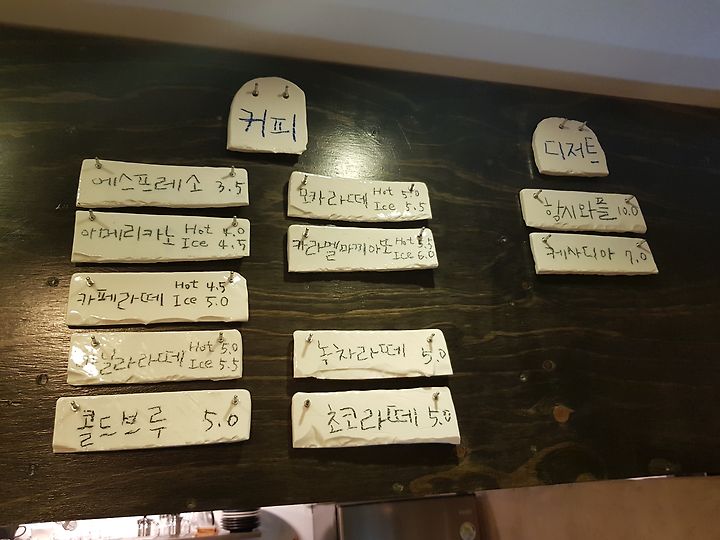 커피
에스프레소 3.5
아메리카노 Hot 4.0
Ice 4.5
카페라떼 Hot 4.5
Ice 5.0
바닐라라떼 Hot 5.0
Ice 5.5
콜드브루 5.0
모카라떼 Hot 5.0
Ice 5.5
카라멜마끼아또 Hot 5.5
Ice 6.0
녹차라떼 5.0
초코라떼 5.0
디저트
와플 10.0
케사디아 7.0